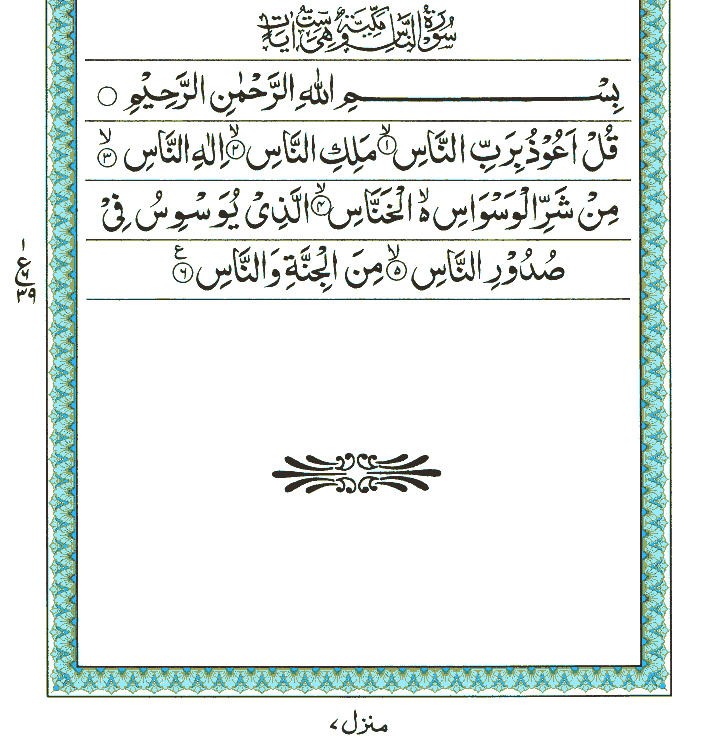 سُوْرَةُ النَّاسِ مَكِّيَّةٌ وَّهِيَ سِتُّ اٰيَاتٍ
بِسْمِ اللّٰهِ الرَّحْمٰنِ الرَّحِيْمِ ○
قُلْ اَعُوْذُ بِرَبِّ النَّاسِ ۙ‏﴿۱﴾ مَلِكِ النَّاسِ ۙ‏﴿۲﴾ اِلٰهِ النَّاسِ ۙ‏﴿۳﴾
مِنْ شَرِّ الْوَسْوَاسِ ۙ۬ الْخَنَّاسِ ۙ‏﴿۴﴾ الَّذِىْ يُوَسْوِسُ فِىْ
صُدُوْرِ النَّاسِ ۙ‏﴿۵﴾ مِنَ الْجِنَّةِ وَالنَّاسِ ﴿۶﴾ ع
۱
ع
۶
۳۹
منزل ۷